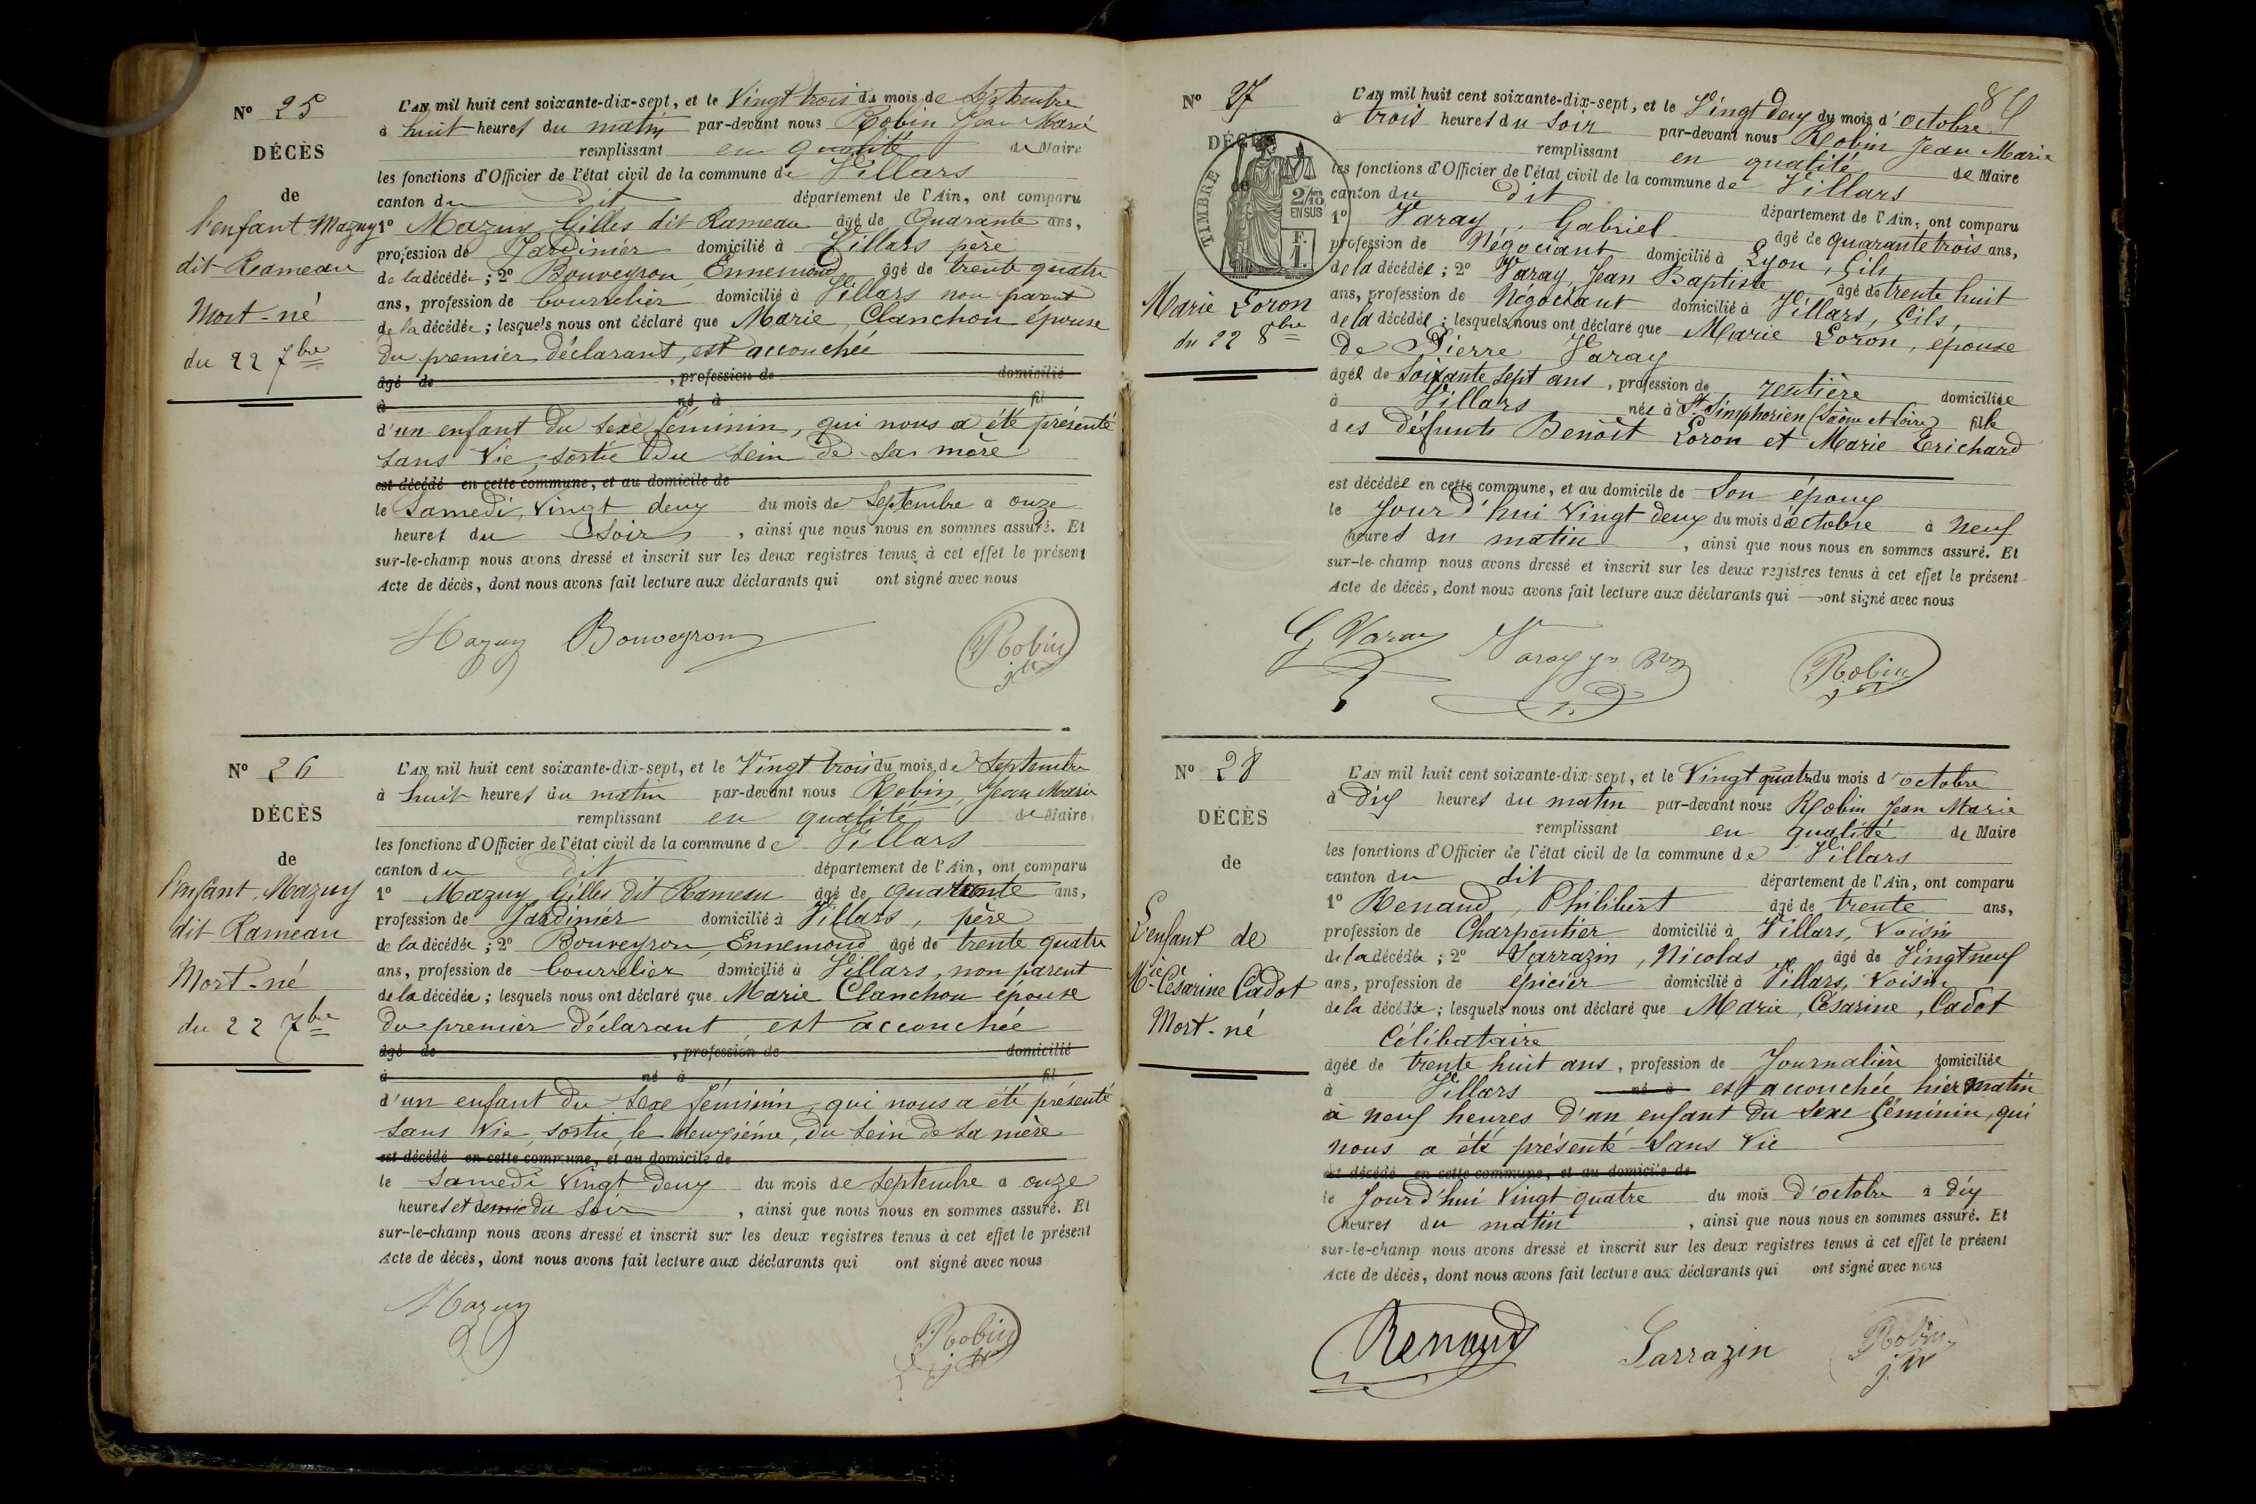 N° 25
DÉCÈS
de
l'enfant Mazuy
dit Rameau
Mort-né
du 22 7bre
L'AN mil huit cent soixante-dix-sept, et le Vingt trois du mois de Septembre
à huit heures du matin par-devant nous Robin Jean Marie
remplissant en qualité de Maire
les fonctions d'Officier de l'état civil de la commune de Villars
canton du dit département de l'Ain, ont comparu
1° Mazuy Gilles dit Rameau âgé de Quarante ans,
profession de Jardinier domicilié à Villars père
de la décédée ; 2° Bouveyron Ennemond âgé de trente quatre
ans, profession de bourrelier domicilié à Villars non parent
de la décédée ; lesquels nous ont déclaré que Marie Clanchon épouse
du premier déclarant, est accouchée
âgé de , profession de domicilié
à né à fil
d'un enfant du sexe féminin, qui nous a été présenté
sans vie, sortie du sein de sa mère
est décédé en cette commune, et au domicile de
le Samedi, Vingt deux du mois de Septembre à onze
heures du Soir , ainsi que nous nous en sommes assuré. Et
sur-le-champ nous avons dressé et inscrit sur les deux registres tenus à cet effet le présent
Acte de décès, dont nous avons fait lecture aux déclarants qui ont signé avec nous
Mazuy Bouveyron Robin
N° 26
DÉCÈS
de
l'enfant Mazuy
dit Rameau
Mort-né
du 22 7bre
L'AN mil huit cent soixante-dix-sept, et le Vingt trois du mois de Septembre
à huit heures du matin par-devant nous Robin, Jean Marie
remplissant en qualité de Maire
les fonctions d'Officier de l'état civil de la commune de Villars
canton du dit département de l'Ain, ont comparu
1° Mazuy Gilles dit Rameau âgé de quarante ans,
profession de Jardinier domicilié à Villars, père
de la décédée ; 2° Bouveyron, Ennemond âgé de trente quatre
ans, profession de bourrelier domicilié à Villars, non parent
de la décédée ; lesquels nous ont déclaré que Marie Clanchon épouse
du premier déclarant est accouchée
âgé de , profession de domicilié
à né à fil
d'un enfant du sexe féminin, qui nous a été présenté
sans vie, sortie, le deuxième, du sein de sa mère
est décédé en cette commune, et au domicile de
le Samedi Vingt deux du mois de Septembre à onze
heures et demie du Soir , ainsi que nous nous en sommes assuré. Et
sur-le-champ nous avons dressé et inscrit sur les deux registres tenus à cet effet le présent
Acte de décès, dont nous avons fait lecture aux déclarants qui ont signé avec nous
Mazuy Robin
84
N° 27
DÉCÈS
de
TIMBRE
2/10 EN SUS
F. 1.
Marie Loron
du 22 8bre
L'AN mil huit cent soixante-dix-sept, et le Vingt deux du mois d'octobre
à trois heures du soir par-devant nous Robin Jean Marie
remplissant en qualité de Maire
les fonctions d'Officier de l'état civil de la commune de Villars
canton du dit département de l'Ain, ont comparu
1° Varay, Gabriel âgé de quarante trois ans,
profession de Négociant domicilié à Lyon, fils
de la décédée ; 2° Varay, Jean Baptiste âgé de trente huit
ans, profession de Négociant domicilié à Villars, fils,
de la décédée ; lesquels nous ont déclaré que Marie Loron, épouse
de Pierre Varay
âgée de Soixante sept ans, profession de rentière domiciliée
à Villars née à St Simphorien (Saône et Loire) fille
des défunts Benoît Loron et Marie Erichard
est décédée en cette commune, et au domicile de Son époux
le Jourd'hui Vingt deux du mois d'octobre à neuf
heures du matin , ainsi que nous nous en sommes assuré. Et
sur-le-champ nous avons dressé et inscrit sur les deux registres tenus à cet effet le présent
Acte de décès, dont nous avons fait lecture aux déclarants qui ont signé avec nous
G Varay Varay Robin
N° 28
DÉCÈS
de
L'enfant de
Mie Césarine Cadot
Mort-né
L'AN mil huit cent soixante-dix-sept, et le Vingt quatre du mois d'octobre
à Dix heures du matin par-devant nous Robin Jean Marie
remplissant en qualité de Maire
les fonctions d'Officier de l'état civil de la commune de Villars
canton du dit département de l'Ain, ont comparu
1° Renaud, Philibert âgé de trente ans,
profession de Charpentier domicilié à Villars, Voisin
de la décédée ; 2° Sarrazin, Nicolas âgé de Vingt neuf
ans, profession de épicier domicilié à Villars, Voisin
de la décédée ; lesquels nous ont déclaré que Marie, Césarine, Cadot
Célibataire
âgée de trente huit ans, profession de Journalière domiciliée
à Villars né à est accouchée hier matin
à neuf heures d'un enfant du sexe féminin, qui
nous a été présenté sans vie
est décédé en cette commune, et au domicile de
le Jourd'hui Vingt quatre du mois d'octobre à dix
heures du matin , ainsi que nous nous en sommes assuré. Et
sur-le-champ nous avons dressé et inscrit sur les deux registres tenus à cet effet le présent
Acte de décès, dont nous avons fait lecture aux déclarants qui ont signé avec nous
Renaud Sarrazin Robin